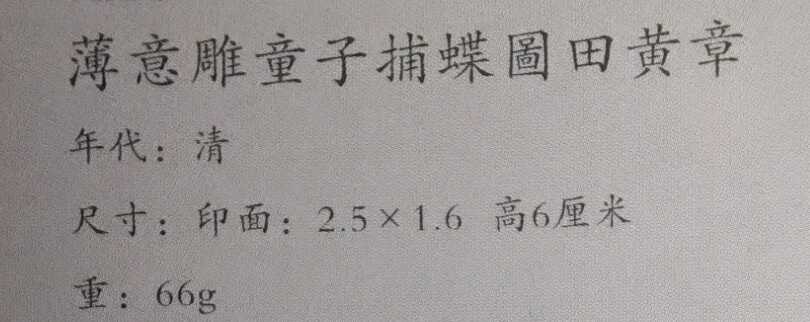 薄意雕童子捕蝶圖田黄章
年代：清
尺寸：印面：2.5×1.6 高6厘米
重：66g